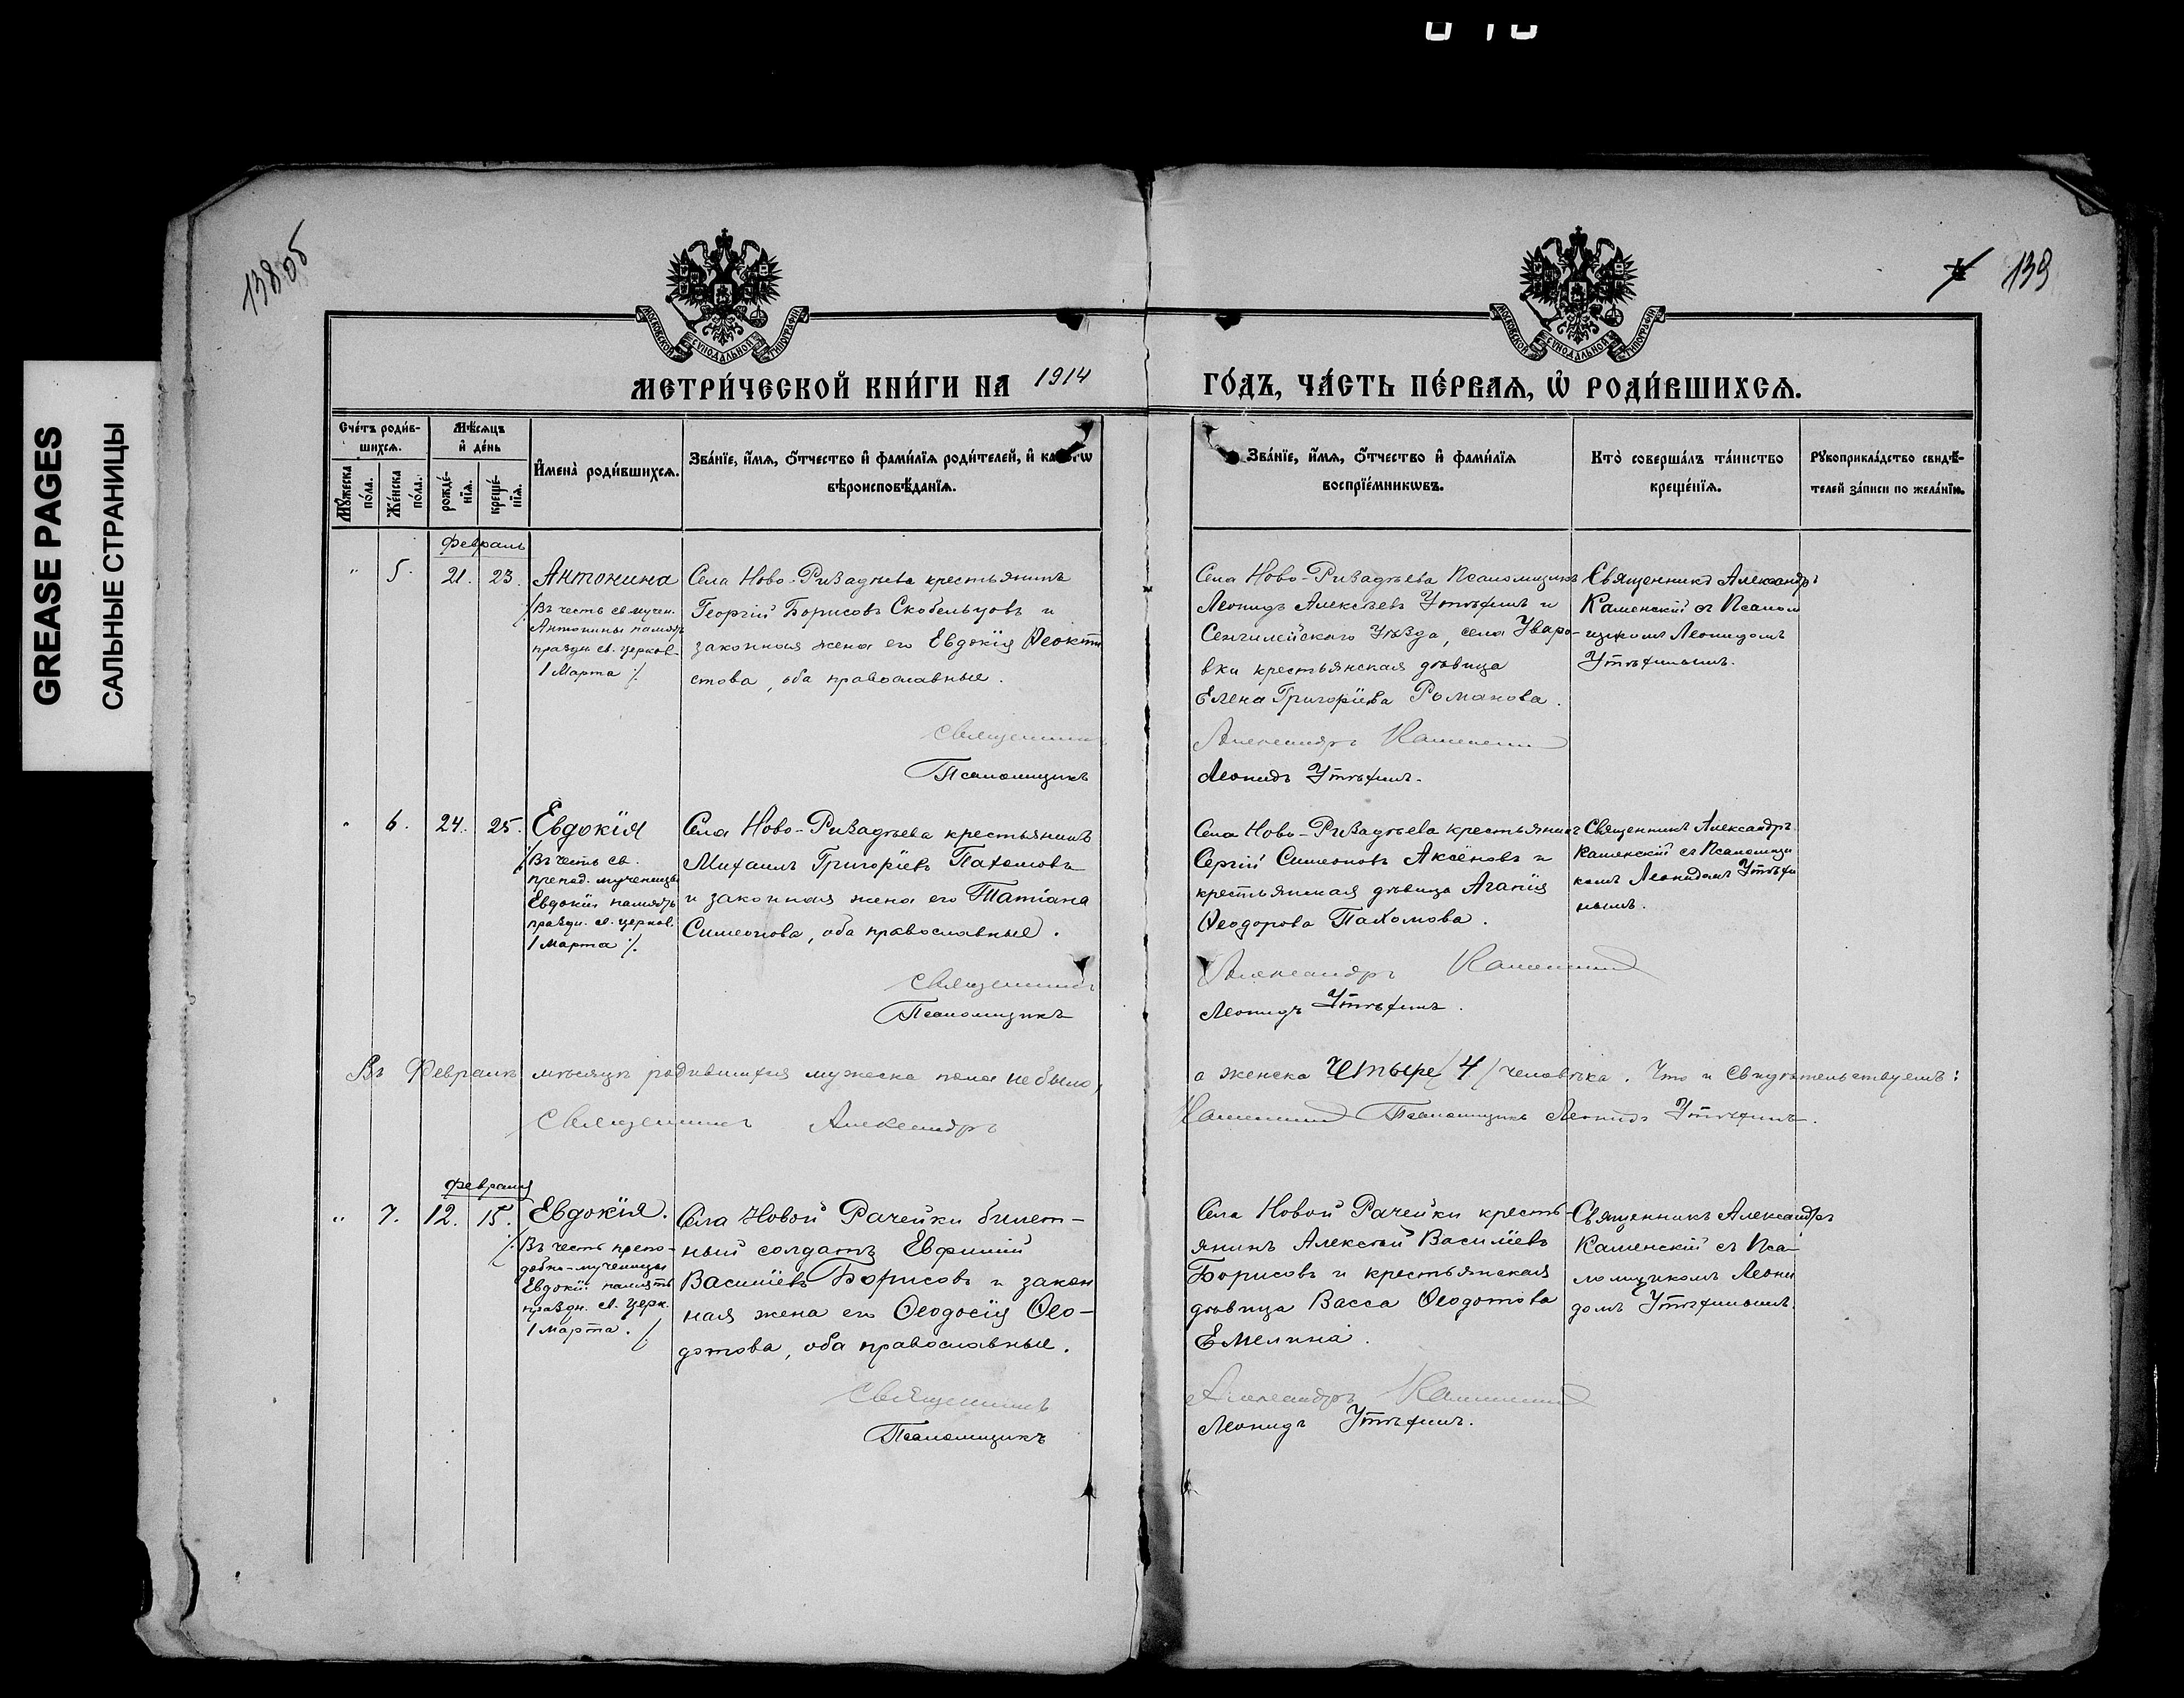 GREASE PAGES
САЛЬНЫЕ СТРАНИЦЫ
138об
139
МОСКОВСКОЙ СѴНОДАЛЬНОЙ ТИПОГРАФІИ
МОСКОВСКОЙ СѴНОДАЛЬНОЙ ТИПОГРАФІИ
МЕТРИ́ЧЕСКОЙ КНИ́ГИ НА 1914 ГО́ДЪ, ЧА́СТЬ ПЕ́РВАѦ, Ѡ҆ РОДИ́ВШИХСѦ.
Сче́тъ роди́в-
шихсѧ.
Мꙋ́жеска по́ла.
Же́нска по́ла.
Мѣ́сѧцъ
и҆ де́нь
рожде́-
нїѧ.
креще́-
нїѧ.
И҆мена̀ роди́вшихсѧ.
Зва́нїе, и҆́мѧ, ѻ҆́тчество и҆ фами́лїѧ роди́телей, и҆ како́гѡ
вѣроисповѣ́данїѧ.
Зва́нїе, и҆́мѧ, ѻ҆́тчество и҆ фами́лїѧ
воспрїе́мникѡвъ.
Кто̀ соверша́лъ та́инство
креще́нїѧ.
Рꙋкоприкла́дство свидѣ́-
телей за́писи по жела́нїю.
Февраль
" 5. 21. 23. Антонина
/Въ честь св. мучен.
Антонины память
праздн. св. церков.
1 Марта ./.
Села Ново-Ризадѣева крестьянинъ
Георгій Борисовъ Скобельцовъ и
законная жена его Евдокія Ѳеокти
стова, оба православные.
Села Ново-Ризадѣева Псаломщикъ
Леонидъ Алексѣевъ Утѣхинъ и
Сенгилейскаго Уѣзда, села Уваро-
вки крестьянская дѣвица
Елена Григоріева Романова.
Священникъ Александръ
Каменскій съ Псалом
щикомъ Леонидомъ
Утѣхинымъ.
Священникъ Александръ Каменскій
Псаломщикъ Леонидъ Утѣхинъ.
" 6. 24. 25. Евдокія
/Въ честь св.
препод. мученицы
Евдокіи память
праздн. св. церков.
1 Марта ./.
Села Ново-Ризадѣева крестьянинъ
Михаилъ Григоріевъ Пахомовъ
и законная жена его Татіана
Симеонова, оба православные.
Села Ново-Ризадѣева крестьянинъ
Сергій Симеоновъ Аксёновъ и
крестьянская дѣвица Агапія
Ѳеодорова Пахомова.
Священникъ Александръ
Каменскій съ Псаломщи
комъ Леонидомъ Утѣхи
нымъ.
Священникъ Александръ Каменскій
Псаломщикъ Леонидъ Утѣхинъ.
Въ Февралѣ мѣсяцѣ родившихся мужеска пола не было, а женска четыре /4/ человѣка. Что и свидѣтельствуемъ:
Священникъ Александръ Каменскій Псаломщикъ Леонидъ Утѣхинъ.
Февраля
" 7. 12. 15. Евдокія.
/Въ честь препо-
добно-мученицы
Евдокіи память
праздн. св. церк.
1 Марта. /
Села Новой Рачейки билет-
ный солдатъ Евфимій
Василіевъ Борисовъ и закон
ная жена его Ѳеодосія Ѳео-
дотова, оба православные.
Села Новой Рачейки кресть-
янинъ Алексѣй Василіевъ
Борисовъ и крестьянская
дѣвица Васса Ѳеодотова
Емелина.
Священникъ Александръ
Каменскій съ Пса-
ломщикомъ Леони
домъ Утѣхинымъ.
Священникъ Александръ Каменскій
Псаломщикъ Леонидъ Утѣхинъ.